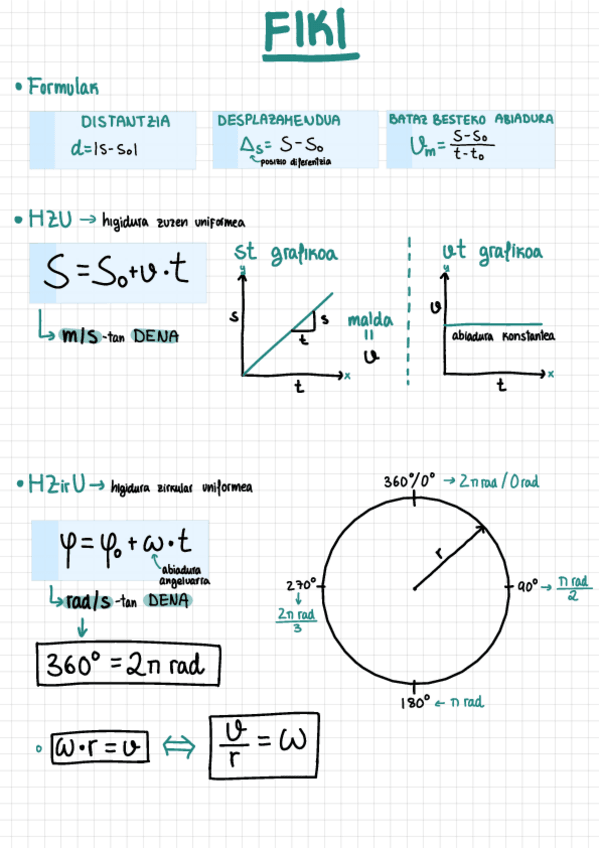 FIKI
• Formulak
DISTANTZIA
d=|s-s₀|
DESPLAZAMENDUA
Δs= S-S₀
posizio diferentzia
BATAZ BESTEKO ABIADURA
Vm= S-S₀ / t-t₀
• HZU → higidura zuzen uniformea
S=S₀+v·t
m/s-tan DENA
st grafikoa
y
s
s
t
t
x
malda
=
v
vt grafikoa
y
v
abiadura konstantea
t
x
• HZirU → higidura zirkular uniformea
φ=φ₀+ω·t
abiadura
angeluarra
rad/s-tan DENA
360° = 2π rad
ω·r=v ⇔ v/r = ω
360°/0° → 2π rad / 0 rad
r
90° → π rad / 2
270°
↓
2π rad / 3
180° ← π rad